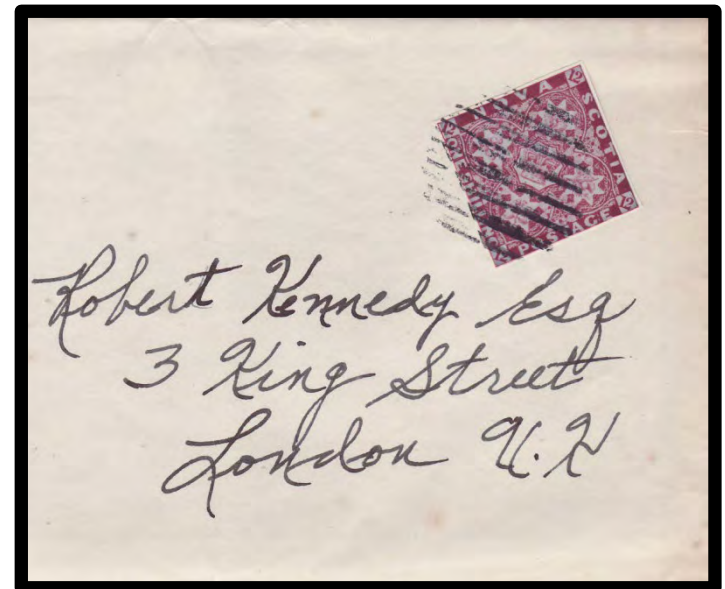 NOVA SCOTIA
POSTAGE
Robert Kennedy Esq
3 King Street
London U.K